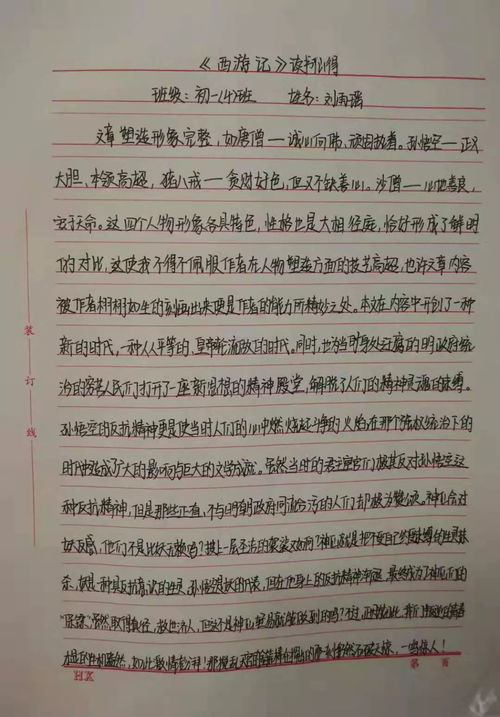 《西游记》读后心得
班级：初一(4)班 姓名：刘雨瑶
文章塑造形象完整，如唐僧一诚心向佛、顽固执着。孙悟空一正义
大胆、本领高超，猪八戒一贪财好色，但又不缺善心。沙僧一心地善良，
安于天命。这四个人物形象各具特色，性格也是大相径庭，恰好形成了鲜明
的对比，这使我不得不佩服作者在人物塑造方面的技艺高超，也许文章内容
被作者栩栩如生的刻画出来便是作者的能力所精妙之处。本文在内容中开创了一种
新的时代，一种人人平等的、皇帝轮流做的时代。同时，也为当时身处迂腐的明政府统
治的劳苦人民们打开了一座新思想的精神殿堂，解脱了人们的精神灵魂的束缚。
孙悟空的反抗精神更是使当时人们的心中燃烧起斗争的火焰，在那个强权统治下的
时代造成了广大的影响与巨大的文学成就。虽然当时的君主更官们极其反对孙悟空这
种反抗精神，但是那些正直、不与明朝政府同流合污的人们却极为赞叹。神仙会对
妖反感，他们不是比妖无赖吗？披上一层圣洁的袈裟又如何？神仙就是把不受自己束缚的生灵抹
杀，妖是一种具反抗意识的生灵，孙悟空是妖的代表，但在他身上的反抗精神渐渐，最终成为了神仙们的
装 订 线
HX
第 页